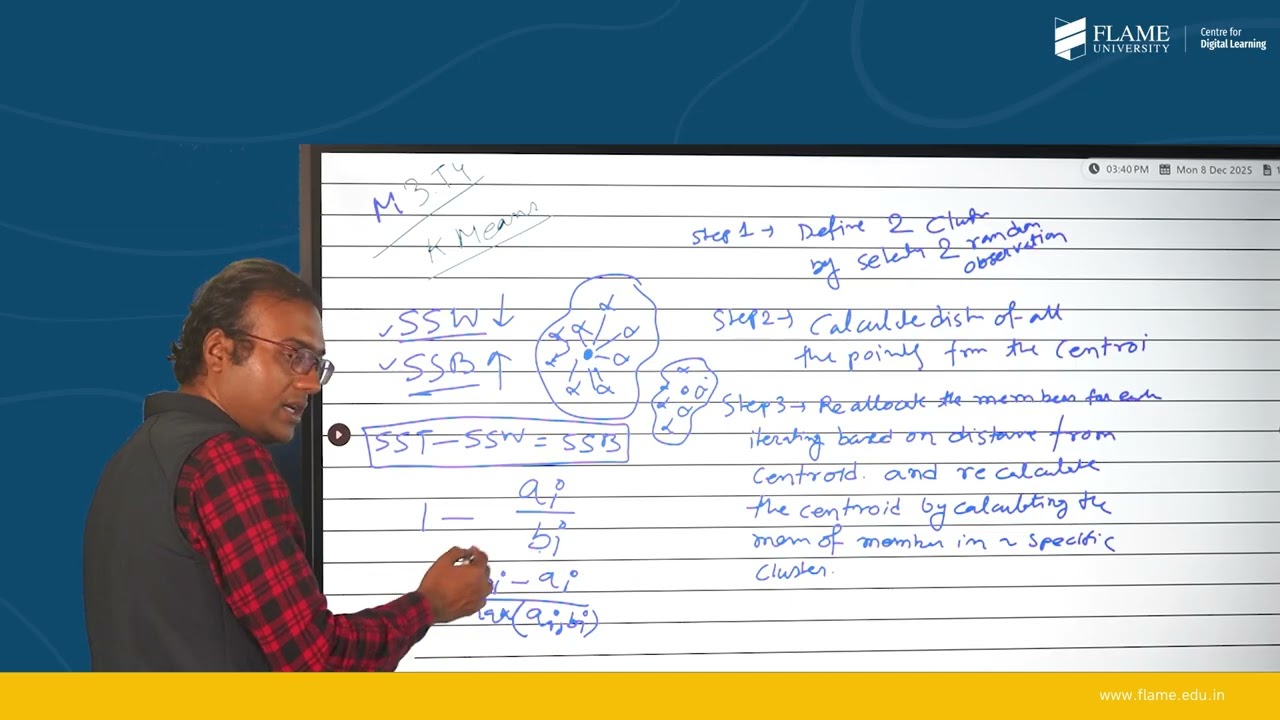 FLAME
UNIVERSITY
Centre for
Digital Learning
03:40 PM Mon 8 Dec 2025
M 3.T4
K Means
Step 1 → Define 2 Clust
by select 2 random
observation
SSW ↓
SSB ↑
Step 2 → Calculate dist of all
the points from the centroi
SST - SSW = SSB
Step 3 → Re allocate the members for each
iterating based on distane from
centroid. and re calculate
the centroid by calculating the
mean of member in a specific
cluster.
1 - ai
bi
i - ai
(ai, bi)
www.flame.edu.in